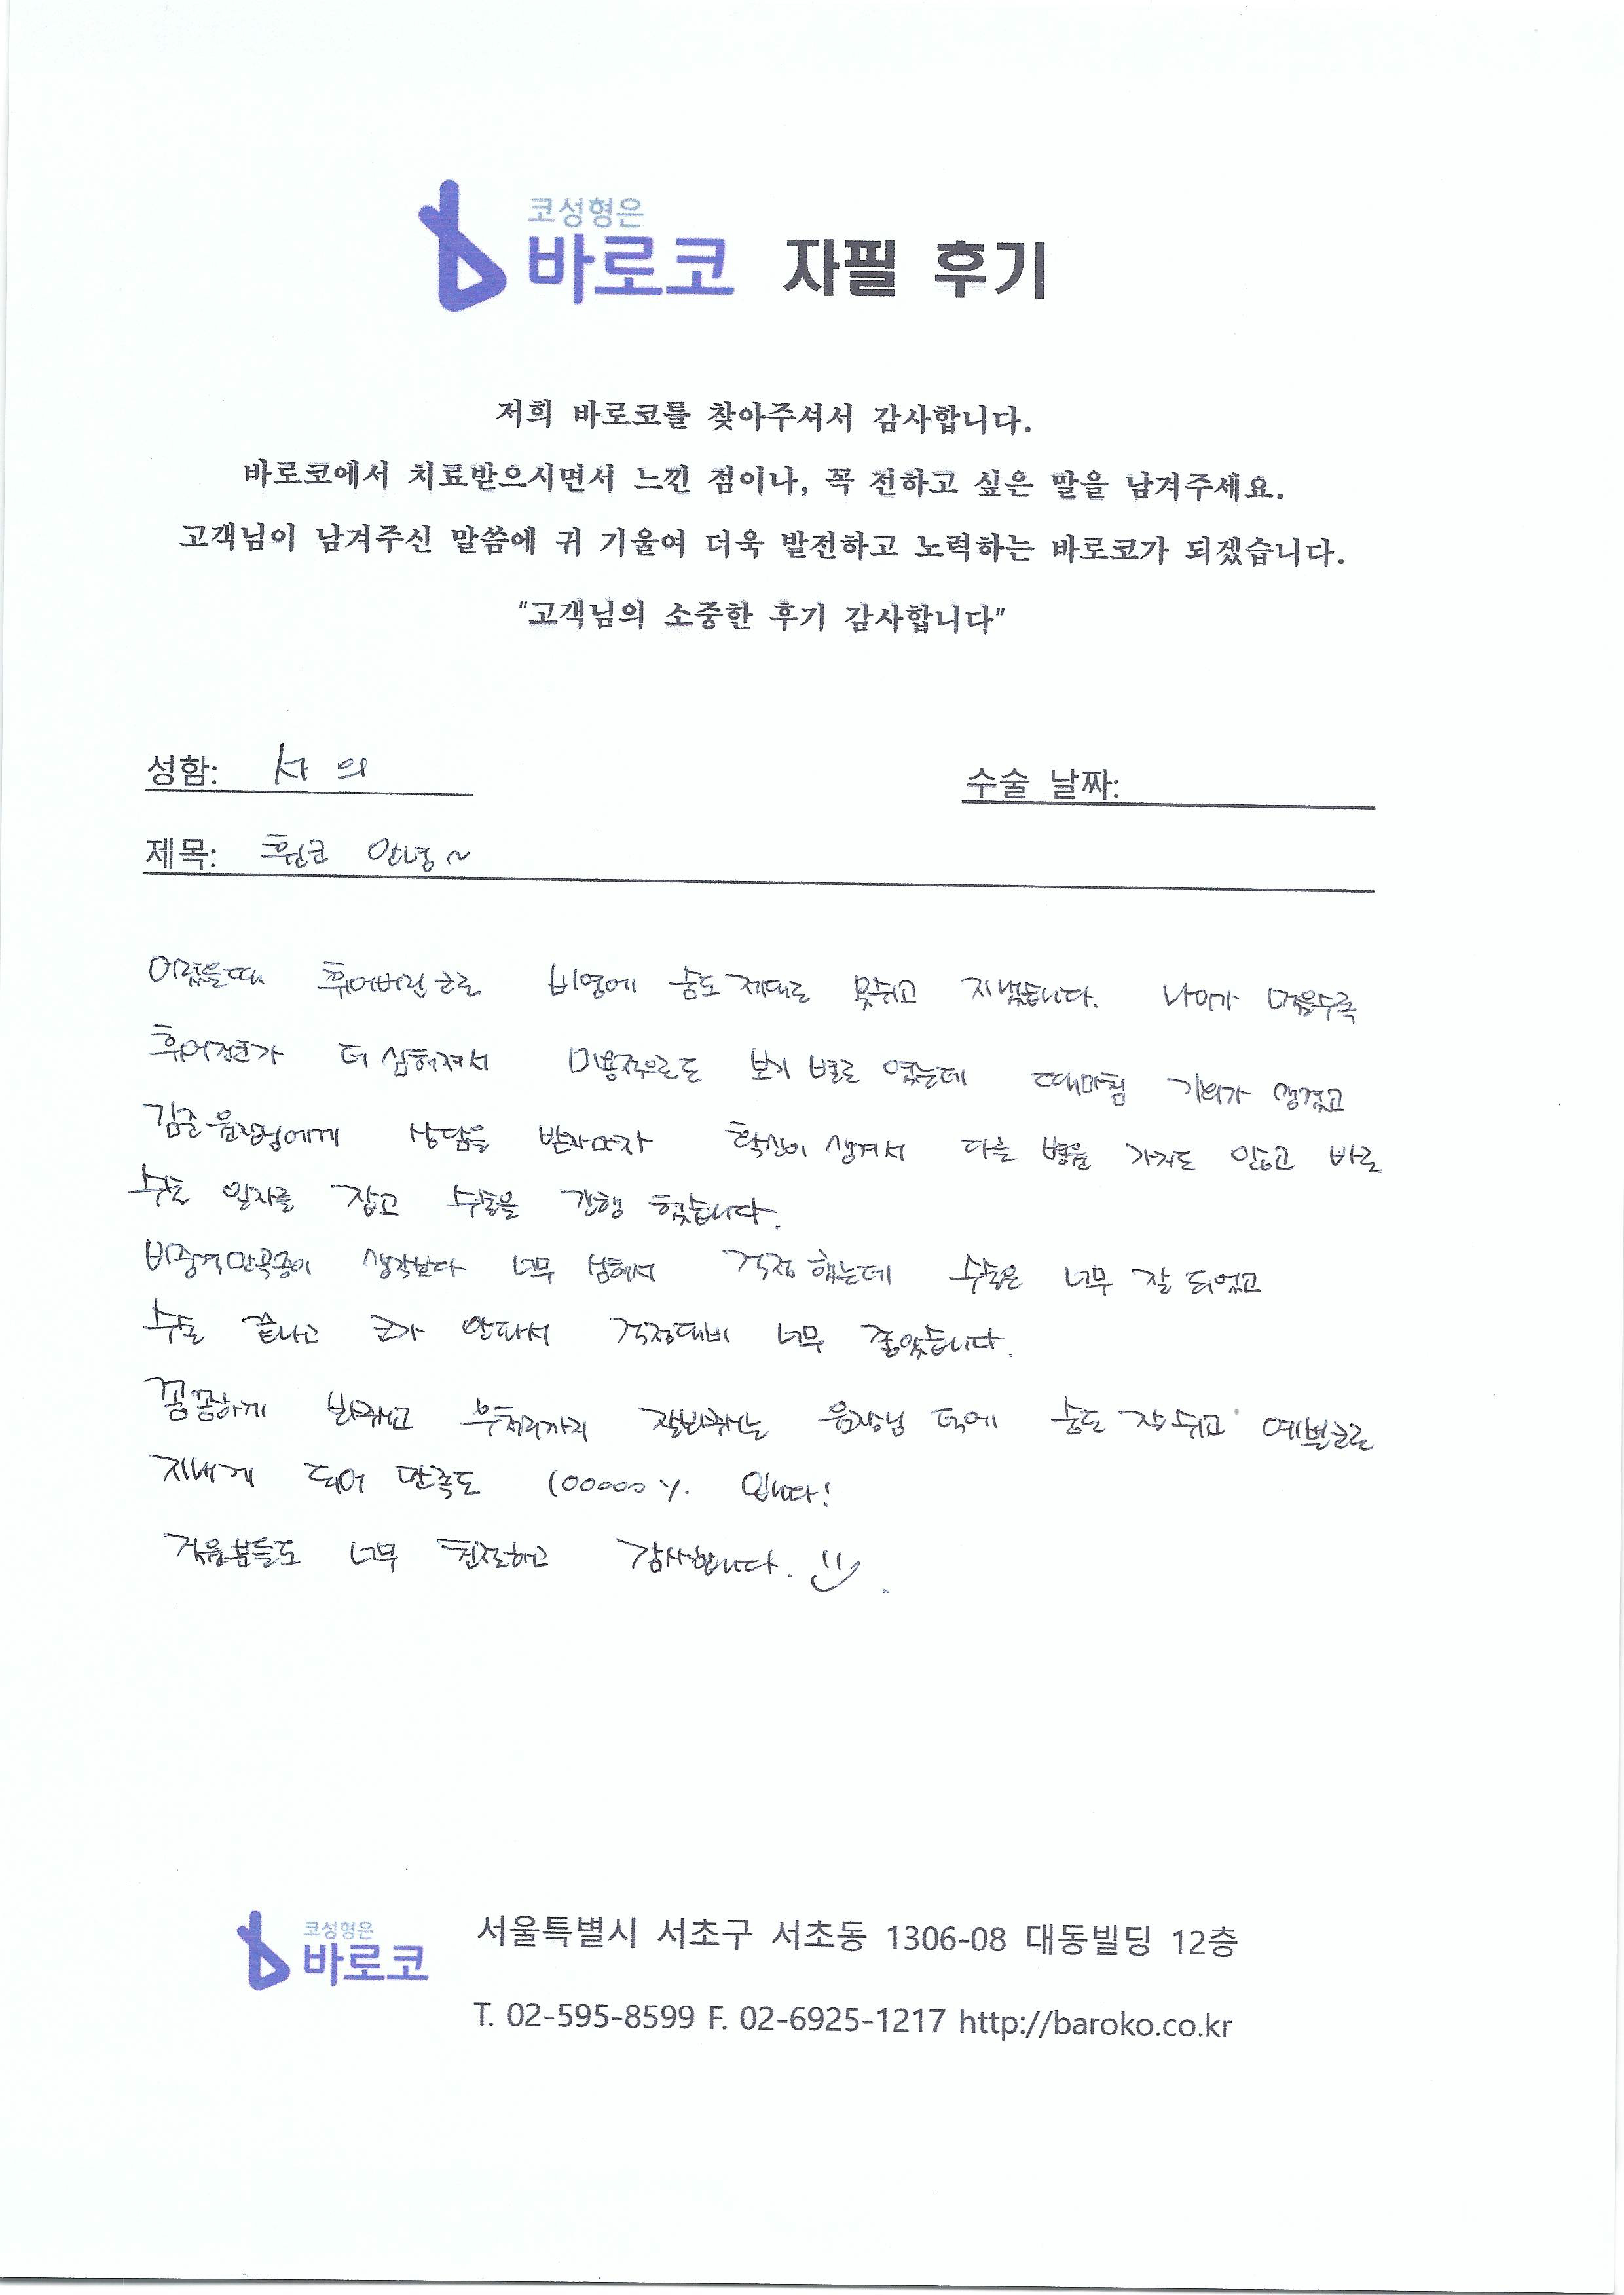 코성형은
바로코 자필 후기
저희 바로코를 찾아주셔서 감사합니다.
바로코에서 치료받으시면서 느낀 점이나, 꼭 전하고 싶은 말을 남겨주세요.
고객님이 남겨주신 말씀에 귀 기울여 더욱 발전하고 노력하는 바로코가 되겠습니다.
"고객님의 소중한 후기 감사합니다"
성함: 서 의 수술 날짜:
제목: 휜코 안녕~
어렸을때 휘어버린 코로 비염에 숨도 제대로 못쉬고 지냈습니다. 나이가 먹을수록
휘어진코가 더 심해져서 미용적으로도 보기 별로 였는데 때마침 기회가 생겼고
김준 원장님에게 상담을 받자마자 확신이 생겨서 다른 병원 가지도 않고 바로
수술 일자를 잡고 수술을 진행 했습니다.
비중격만곡증이 생각보다 너무 심해서 걱정 했는데 수술은 너무 잘 되었고
수술 끝나고 코가 안파서 걱정대비 너무 좋았습니다.
꼼꼼하게 봐주시고 후처리까지 잘봐주시는 원장님 덕에 숨도 잘 쉬고 예쁜코로
지내게 되어 만족도 100000% 입니다!
직원분들도 너무 친절하고 감사합니다.
코성형은
바로코
서울특별시 서초구 서초동 1306-08 대동빌딩 12층
T. 02-595-8599 F. 02-6925-1217 http://baroko.co.kr